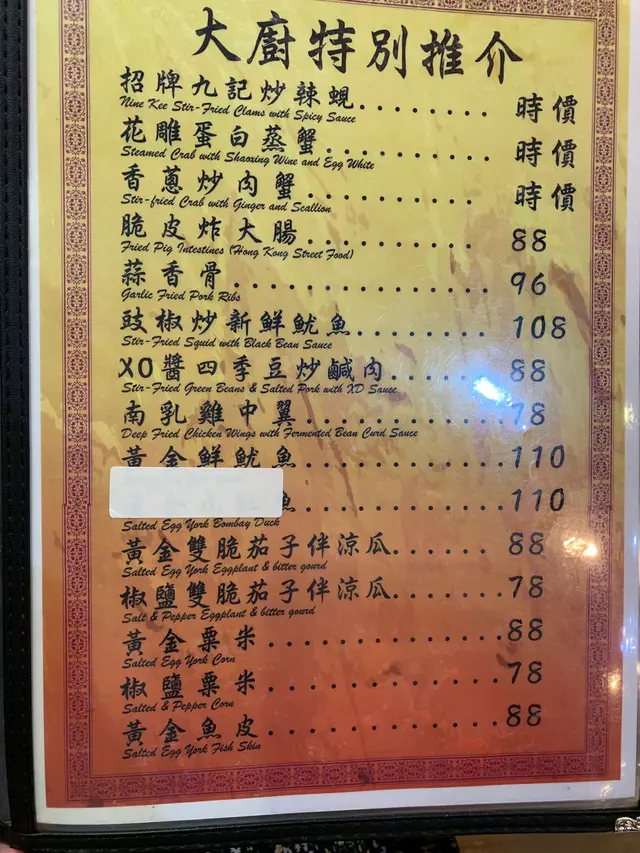 大廚特別推介
招牌九記炒辣蜆........ 時價
Nine Kee Stir-Fried Clams with Spicy Sauce
花雕蛋白蒸蟹......... 時價
Steamed Crab with Shaoxing Wine and Egg White
香蔥炒肉蟹......... 時價
Stir-fried Crab with Ginger and Scallion
脆皮炸大腸......... 88
Fried Pig Intestines (Hong Kong Street Food)
蒜香骨............. 96
Garlic Fried Pork Ribs
豉椒炒新鮮魷魚........ 108
Stir-Fried Squid with Black Bean Sauce
XO醬四季豆炒鹹肉...... 88
Stir-Fried Green Beans & Salted Pork with XO Sauce
南乳雞中翼........... 78
Deep Fried Chicken Wings with Fermented Bean Curd Sauce
黃金鮮魷魚........... 110
魚........... 110
Salted Egg York Bombay Duck
黃金雙脆茄子伴涼瓜...... 88
Salted Egg York Eggplant & bitter gourd
椒鹽雙脆茄子伴涼瓜...... 78
Salt & Pepper Eggplant & bitter gourd
黃金粟米............ 88
Salted Egg York Corn
椒鹽粟米............ 78
Salted & Pepper Corn
黃金魚皮............ 88
Salted Egg York Fish Skin